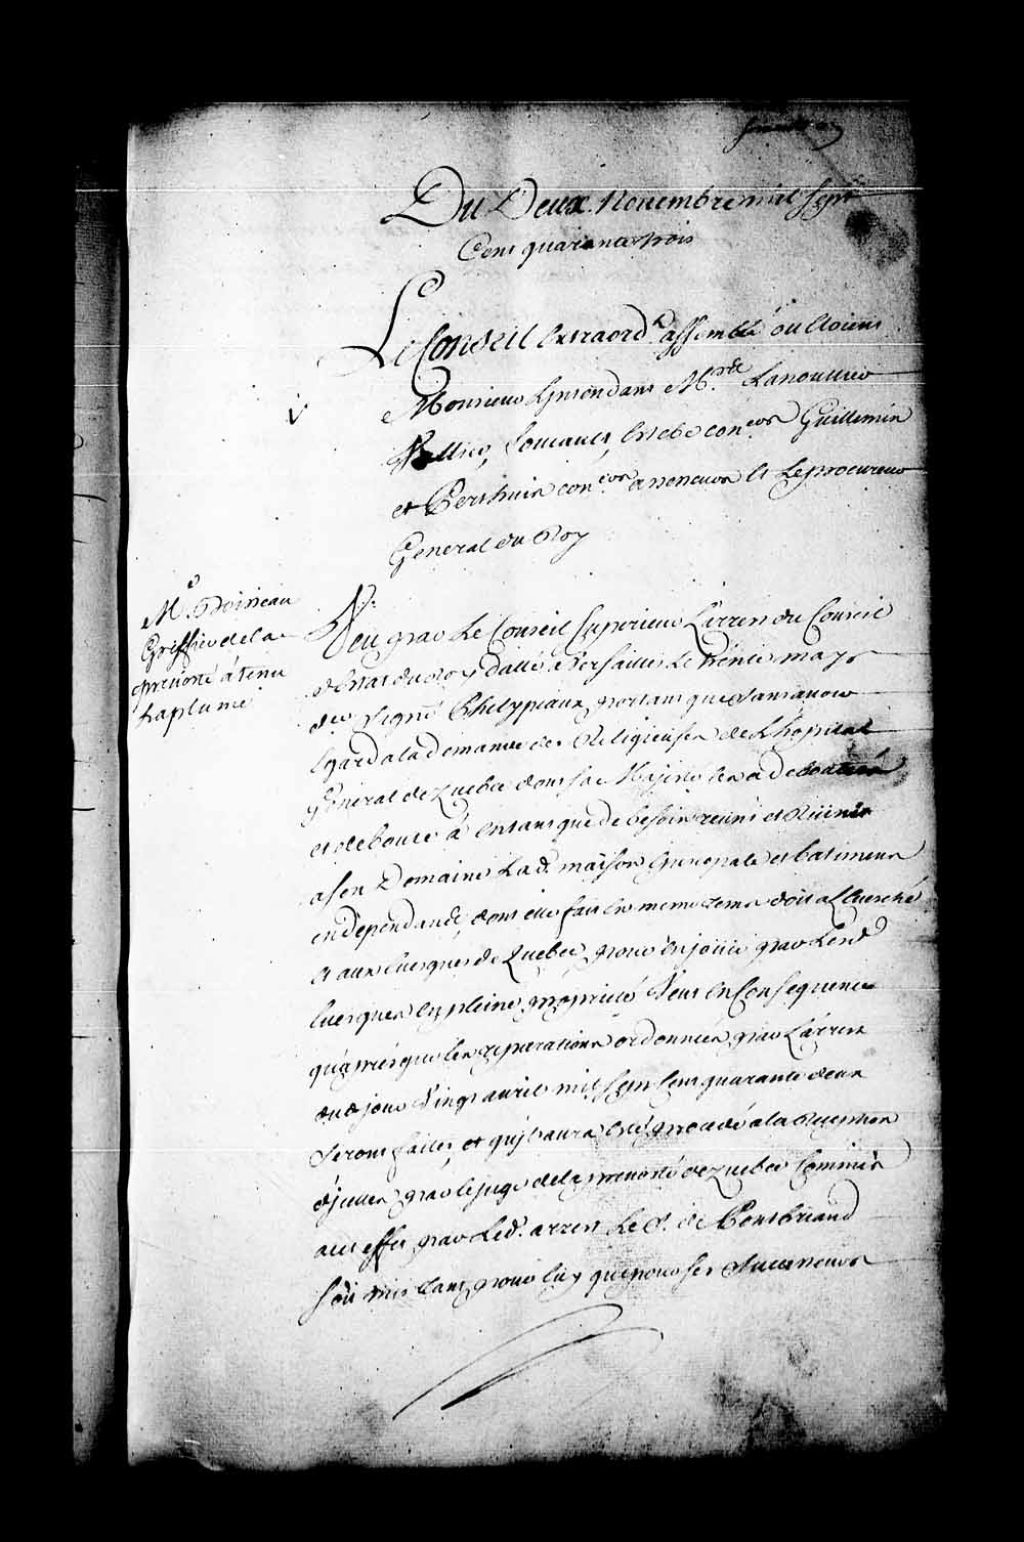 Du Deux Novembre mil sept
Cent quarante trois
Le Conseil Extraord.re assemblé où Etoient
Monsieur L'intendant M.rs Lanoullier
Vallier, Foucault, Estebe con.ers Guillemin
et Perthuis con.ers assesseurs Et Le procureur
General du Roy
M.e Boisseau
Greffier de la
prevoté à tenu
la plume
Veu par Le Conseil Superieur L'arrest du Conseil
d'Estat du roy datté a Versailles Le trente may
d.er signé Phelypeaux, portant que sans avoir
Egard a la demande des Religieuses de L'hopital
general de quebec dont sa Majesté les a deboutées
et deboute à En tant que de besoin reuni et Réunit
a son Domaine La d.e maison Episcopale et batimens
en dependants, dont elle fait En meme tems don a L'Eveché
Et aux Evesques de Quebec, pour En jouir par Lesd.
Evesques En pleine proprieté Veut En Consequence
qu'apres que les reparations ordonnées par L'arrest
du d. jour Vingt avril mil sept Cent quarante deux
seront faites, et qu'il aura Eté procedé a la Reception
d'jcelles par le juge de la prevoté de quebec Commis
a cet effet par Led. arrest Le S. de Pontbriand
soit mis tant pour luy que pour ses Successeurs